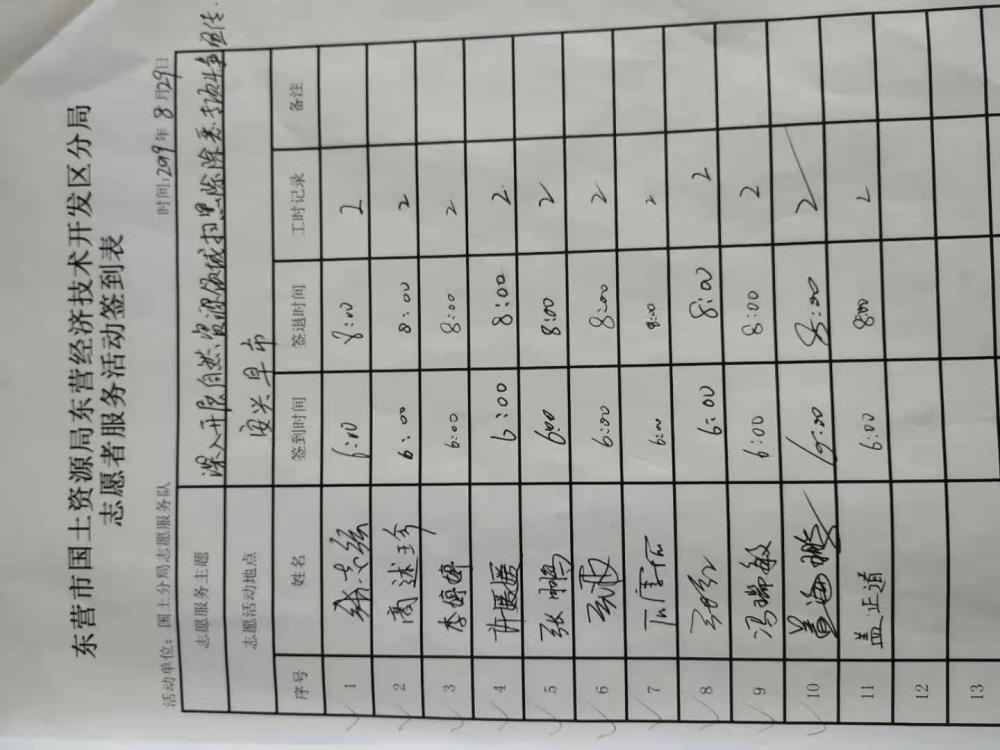 东营市国土资源局东营经济技术开发区分局
志愿者服务活动签到表
活动单位：国土分局志愿服务队 时间:2019年8月29日
志愿服务主题 深入开展自然资源领域扫黑除恶专项斗争宣传.
志愿活动地点 安兴早市
序号 姓名 签到时间 签退时间 工时记录 备注
1 6:00 8:00 2
2 商述珍 6:00 8:00 2
3 李婷婷 6:00 8:00 2
4 许媛媛 6:00 8:00 2
5 张鹏 6:00 8:00 2
6 6:00 8:00 2
7 6:00 8:00 2
8 6:00 8:00 2
9 冯瑞敏 6:00 8:00 2
10 盖海鹏 6:00 8:00 2
11 盖正道 6:00 8:00 2
12
13